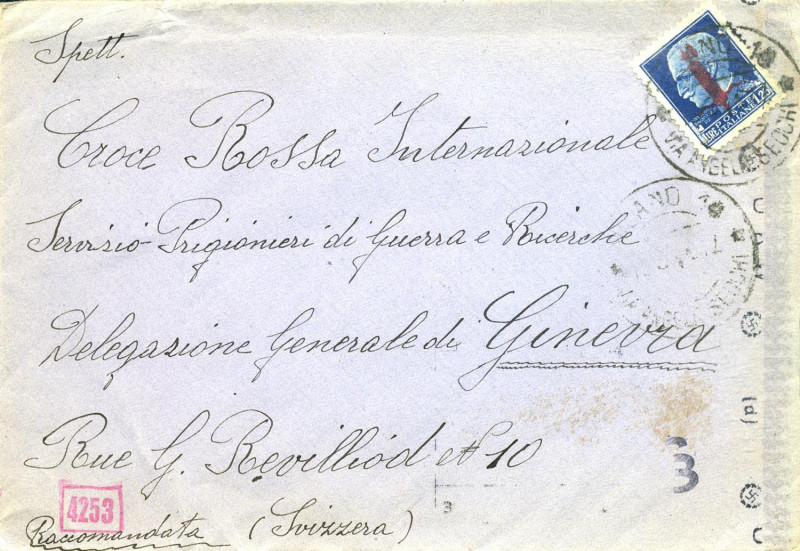 Spett.
Croce Rossa Internazionale
Servizio Prigionieri di Guerra e Ricerche
Delegazione Generale di Ginevra
Rue G. Revilliód N° 10
Raccomandata (Svizzera)
4253
3
3
POSTE ITALIANE
LIRE 1,25
ANO 18
VIA ANGELO SECCHI
ANO 18
VIA ANGELO SECCHI
(a)